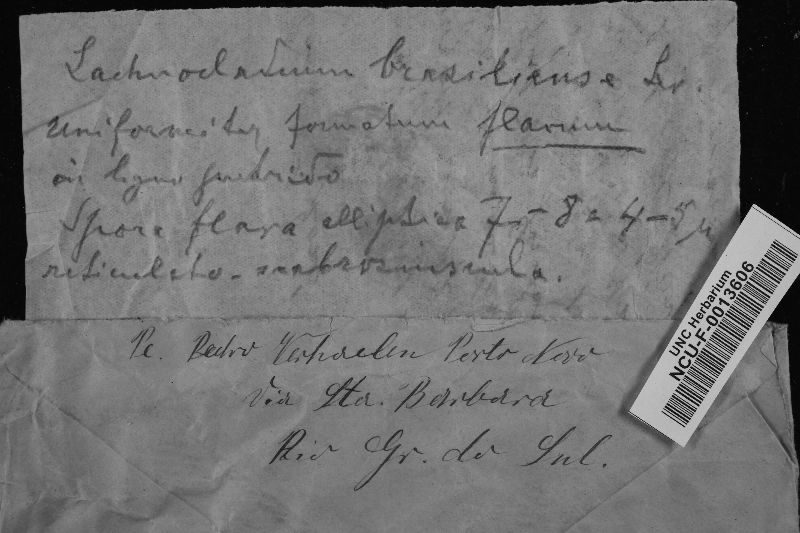 Lachnocladium brasiliense Lev.
uniformiter formatum flavum
in ligno putrido
Spora flava elliptica 7-8 = 4-5 µ
reticulato-scabrominuscula.
Pe. Pedro Verhaelen Porto Novo
via Sta. Barbara
Rio Gr. do Sul.
UNC Herbarium
NCU-F-0013606